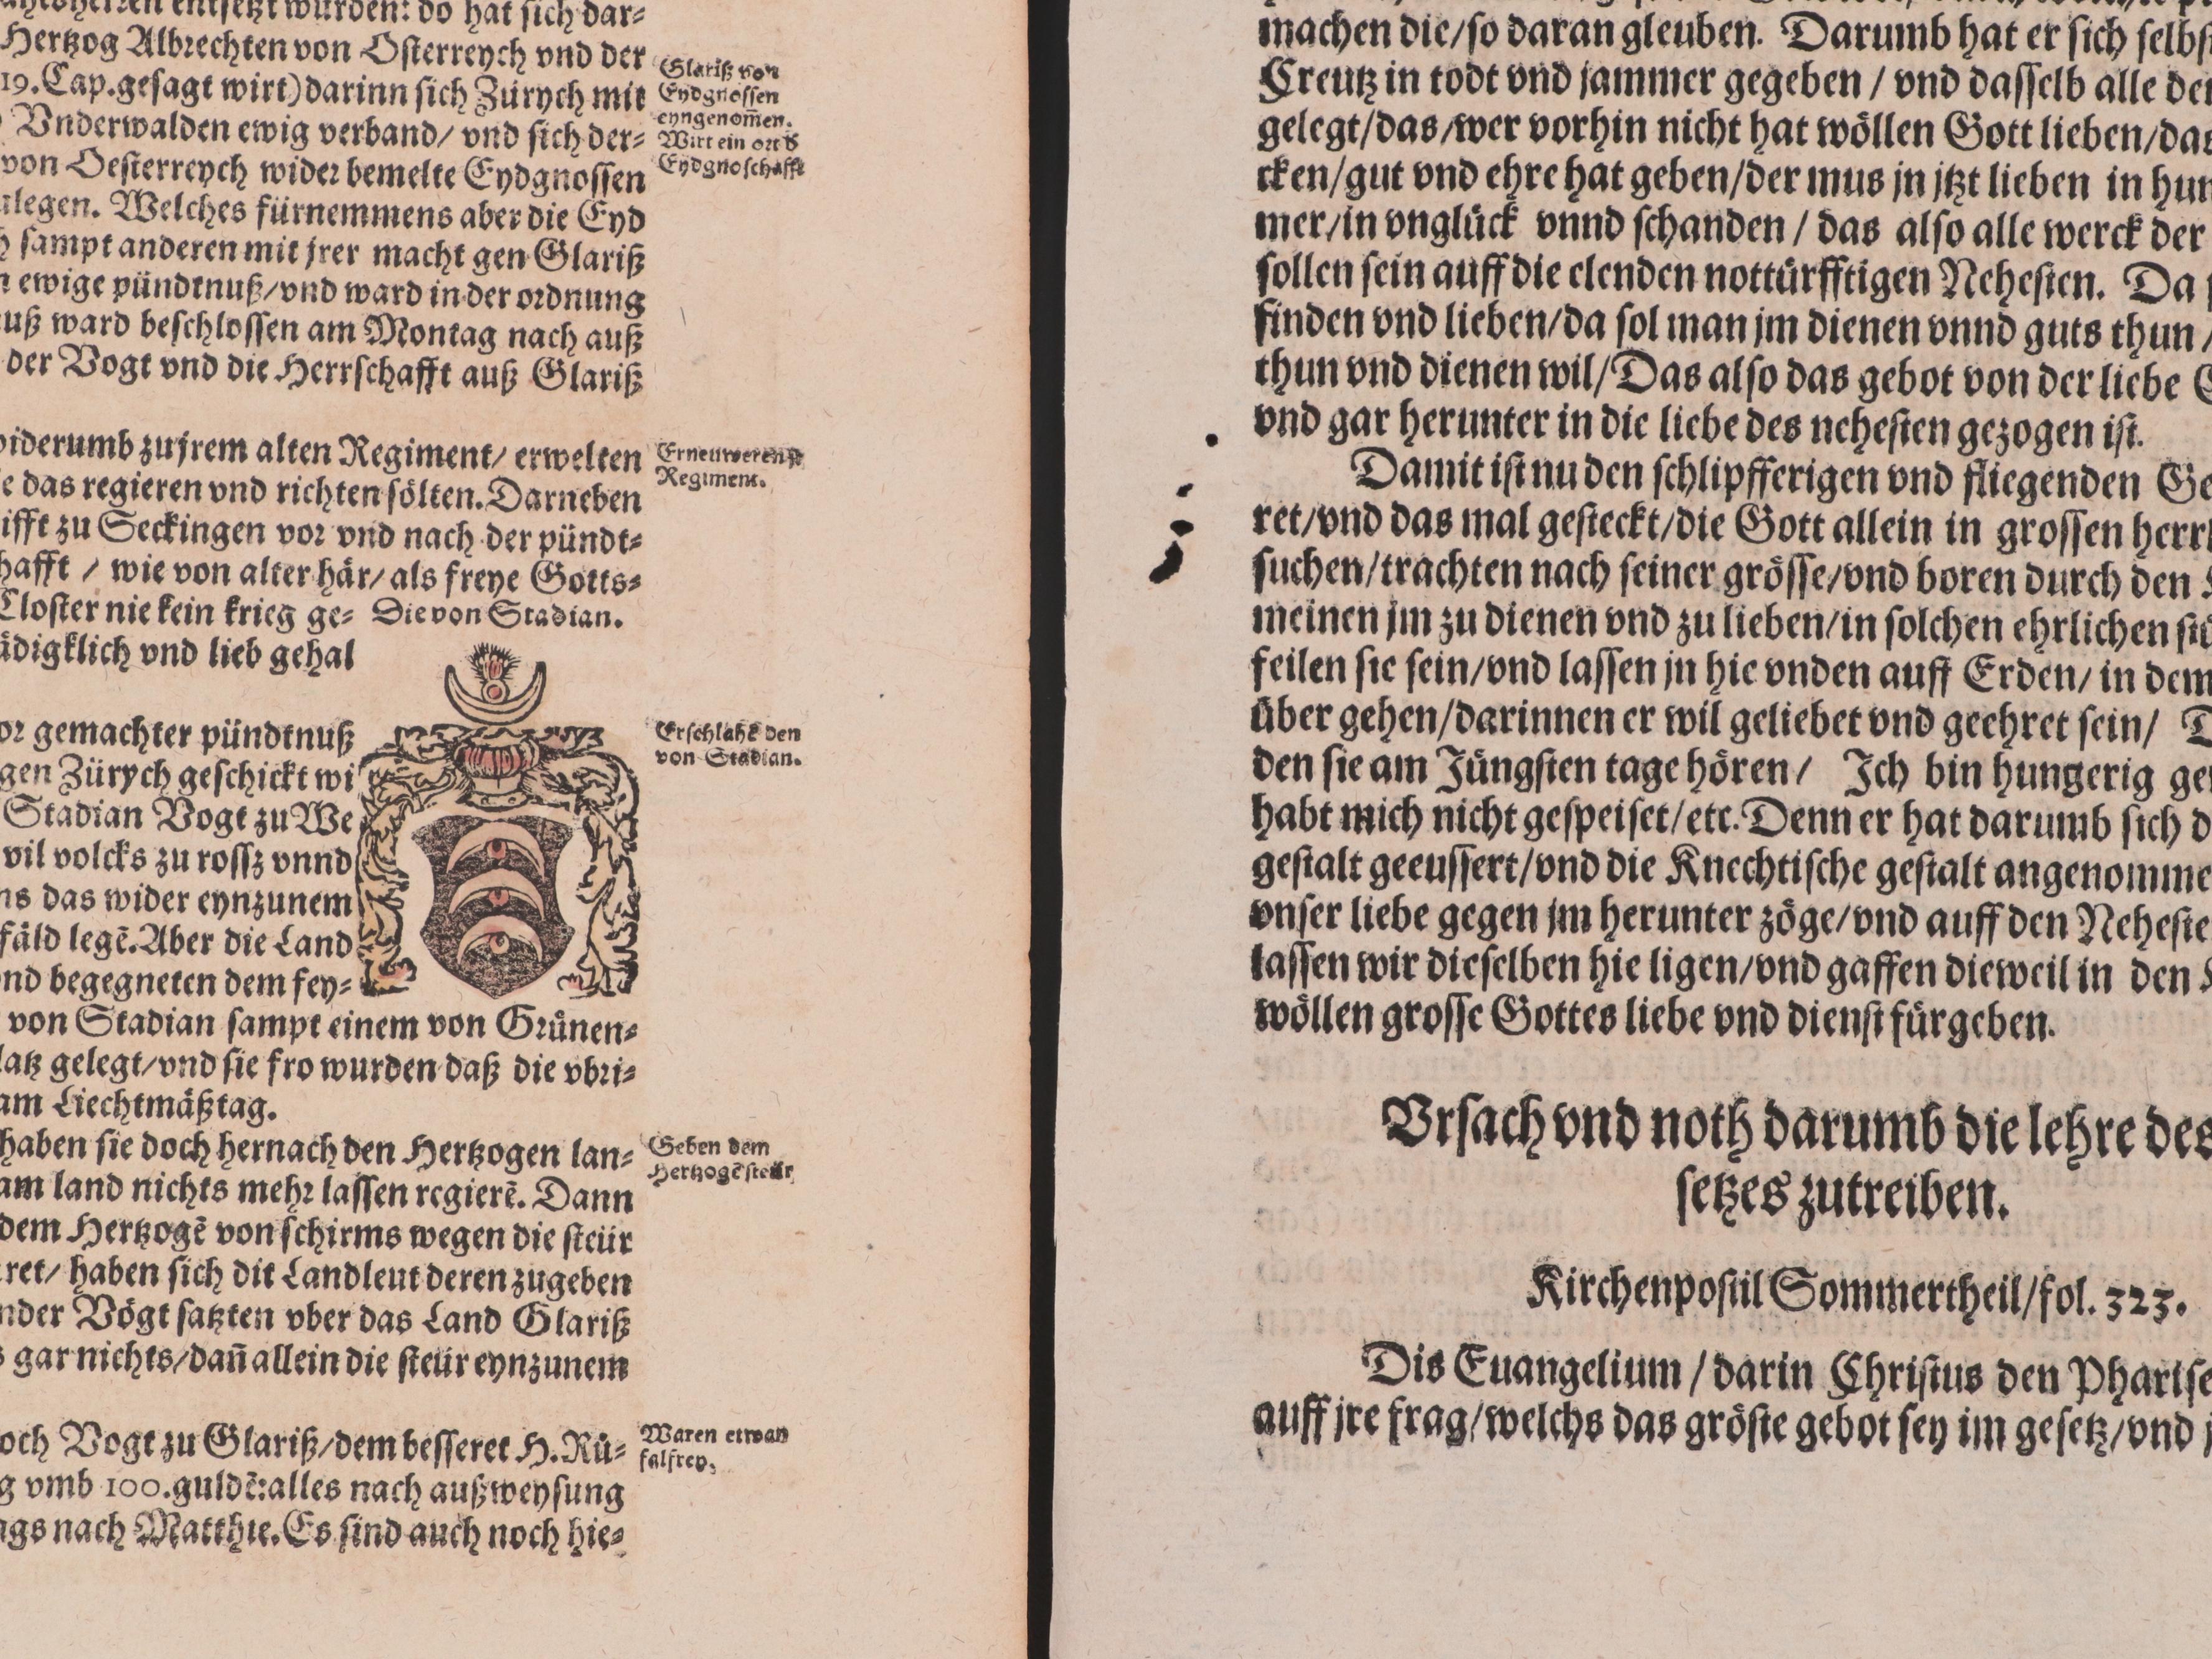 entsetzt wurden: do hat sich dar-
Hertzog Albrechten von Osterreych vnd der
19. Cap. gesagt wirt) darinn sich Zürych mit
Vnderwalden ewig verband/ vnd sich der-
von Oesterreych wider bemelte Eydgnossen
legen. Welches fürnemmens aber die Eyd
sampt anderen mit jrer macht gen Glariß
ewige pündtnuß/ vnd ward in der ordnung
ward beschlossen am Montag nach auß
der Vogt vnd die Herrschafft auß Glariß
widerumb zu jrem alten Regiment/ erwelten
das regieren vnd richten sölten. Darneben
zu Seckingen vor vnd nach der pündt-
/ wie von alter här/ als freye Gotts-
Closter nie kein krieg ge-
vnd lieb gehal
gemachter pündtnuß
gen Zürych geschickt wi
Stadian Vogt zu We
vil volcks zu rossz vnnd
das wider eynzunem
fäld legē. Aber die Land
vnd begegneten dem fey-
von Stadian sampt einem von Grünen-
gelegt/ vnd sie fro wurden daß die vbri-
am Liechtmäßtag.
haben sie doch hernach den Hertzogen lan-
land nichts mehr lassen regierē. Dann
dem Hertzogē von schirms wegen die steür
haben sich die Landleut deren zugeben
Vögt satzten vber das Land Glariß
gar nichts/ dañ allein die steür eynzunem
Vogt zu Glariß/ dem besseret H. Rü-
vmb 100. guldē: alles nach außweysung
nach Matthie. Es sind auch noch hie-
Die von Stadian.
Glariß von
Eydgnossen
eyngenom̄en.
Wirt ein ort d
Eydgnoschafft
Erneuweren jr
Regiment.
Erschlaht den
von Stadian.
Geben dem
Hertzogē steür
Waren etwan
falfrey.
machen die/ so daran gleuben. Darumb hat er sich selbs
Creutz in todt vnd jammer gegeben / vnd dasselb alle
gelegt/ das/ wer vorhin nicht hat wöllen Gott lieben/
cken/ gut vnd ehre hat geben/ der mus jn jtzt lieben in
mer/ in vnglück vnnd schanden / das also alle werck der
sollen sein auff die elenden nottürfftigen Nehesten. Da
finden vnd lieben/ da sol man jm dienen vnnd guts thun /
thun vnd dienen wil/ Das also das gebot von der liebe
vnd gar herunter in die liebe des nehesten gezogen ist.
Damit ist nu den schlipfferigen vnd fliegenden
ret/ vnd das mal gesteckt/ die Gott allein in grossen
suchen/ trachten nach seiner grösse/ vnd boren durch den
meinen jm zu dienen vnd zu lieben/ in solchen ehrlichen
feilen sie sein/ vnd lassen jn hie vnden auff Erden/ in dem
über gehen/ darinnen er wil geliebet vnd geehret sein/
den sie am Jüngsten tage hören/ Ich bin hungerig
habt mich nicht gespeiset/ etc. Denn er hat darumb sich
gestalt geeussert/ vnd die Knechtische gestalt angenomme
vnser liebe gegen jm herunter zöge/ vnd auff den Neheste
lassen wir dieselben hie ligen/ vnd gaffen dieweil in den
wöllen grosse Gottes liebe vnd dienst fürgeben.
Vrsach vnd noth darumb die lehre des
setzes zutreiben.
Kirchenpostil Sommertheil/ fol. 323.
Dis Euangelium / darin Christus den
auff jre frag/ welchs das gröste gebot sey im gesetz/ vnd